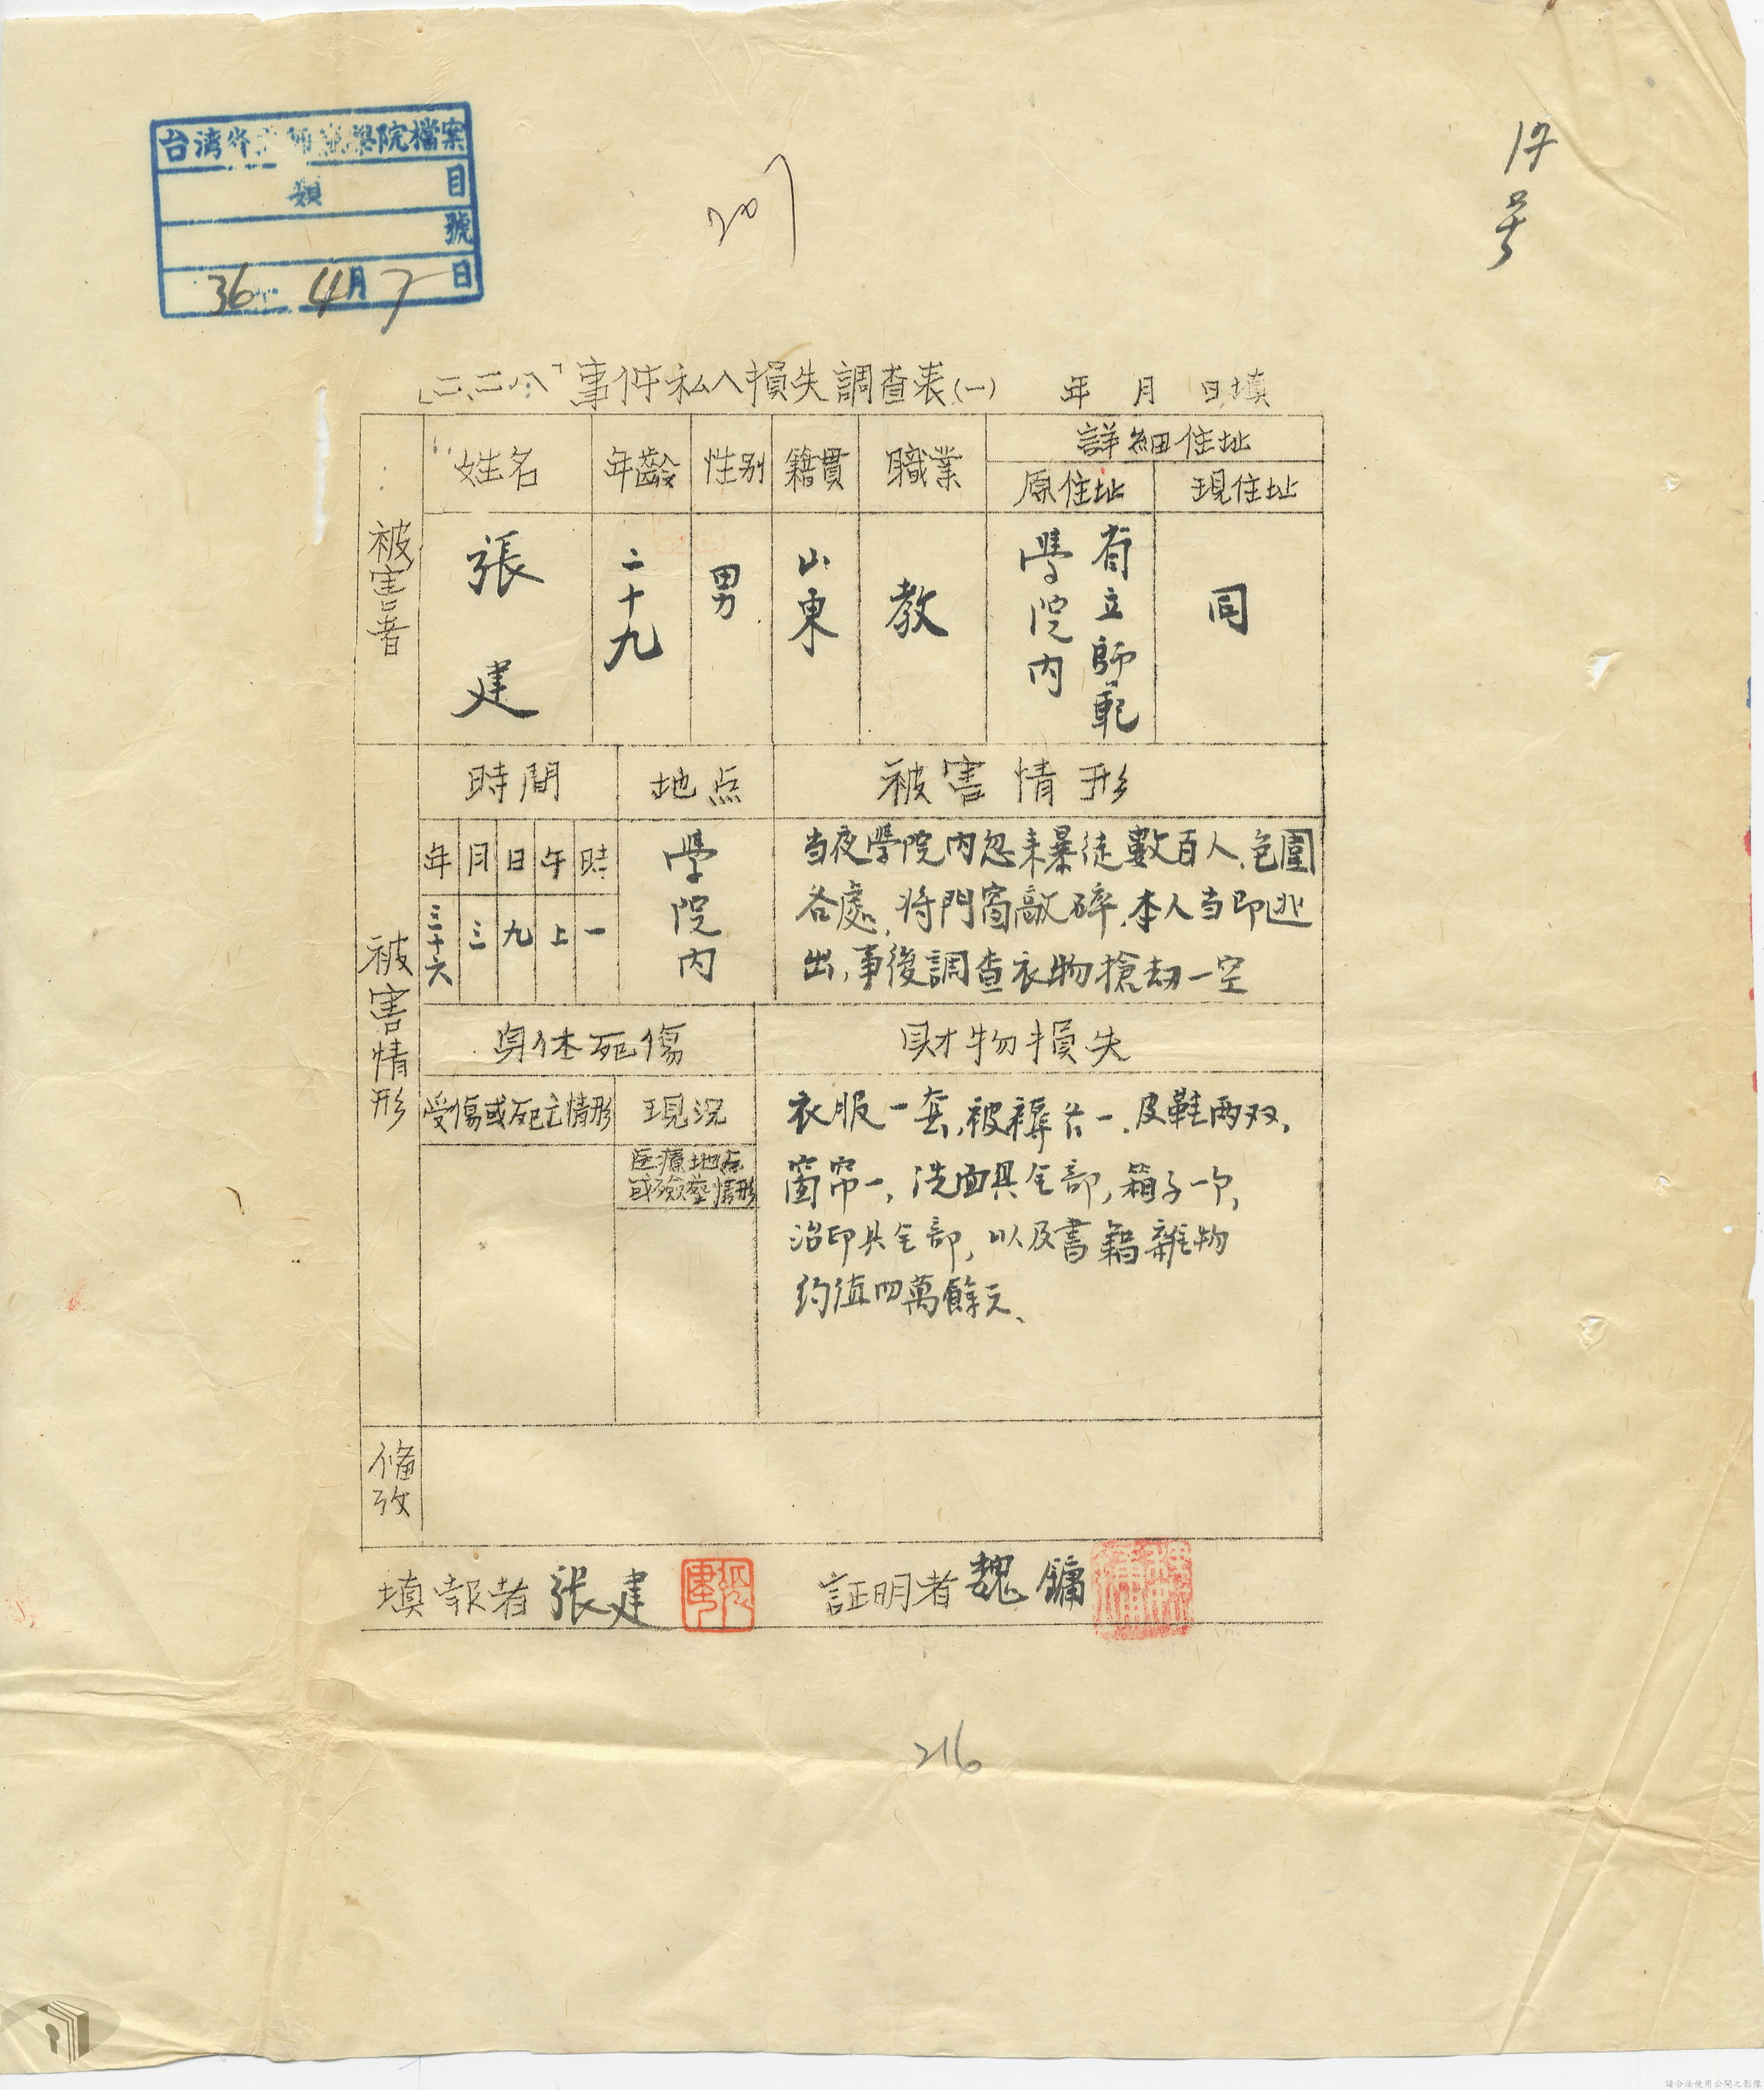 台湾省立師範學院檔案
類 目
號
36 4月7日
207
17号
「二、二八」事件私人損失調查表(一) 年 月 日填
被害者
姓名 年齡 性别 籍貫 職業 詳細住址
原住址 現住址
張建 二十九 男 山東 教 省立師範學院内 同
被害情形
時間 地点 被害情形
年 月 日 午 時
三十六 三 九 上 一
學院内
当夜學院内忽来暴徒數百人,包圍
各處,将門窗敲碎,本人当即逃
出,事後調查衣物搶劫一空
身体死傷 財物損失
受傷或死亡情形 現況
医療地点
或殮葬情形
衣服一套,被褥各一,皮鞋两双,
窗帘一,洗面具全部,箱子一个,
治印具全部,以及書籍雜物
约值四萬餘元、
備攷
填報者 張建 証明者 魏鏞
216
請合法使用公開之影像